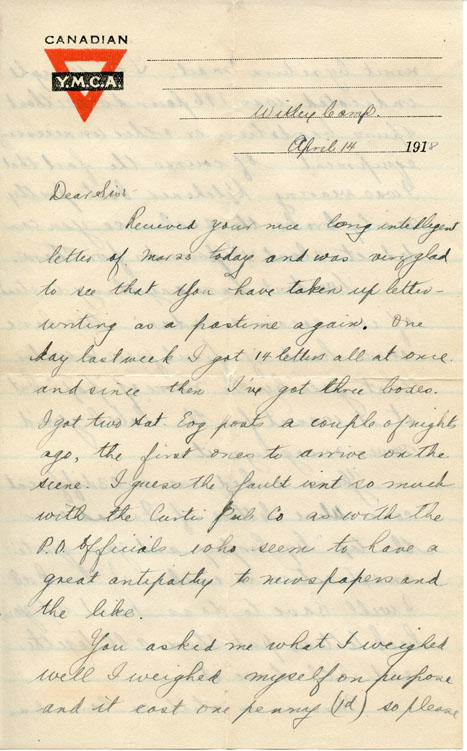 CANADIAN
Y.M.C.A.
Witley Camp.
April 14 1918
Dear Sir:-
Recieved your nice long intellegent
letter of Mar 23 today and was very glad
to see that you have taken up letter-
writing as a pastime again. One
day last week I got 14 letters all at once
and since then I've got three boxes.
I got two Sat. Evg posts a couple of nights
ago, the first ones to arrive on the
scene. I guess the fault isnt so much
with the Curtis Pub Co as with the
P.O. Officials who seem to have a
great antipathy to newspapers and
the like.
You asked me what I weighed
well I weighed myself on purpose
and it cost one penny (1d) so please